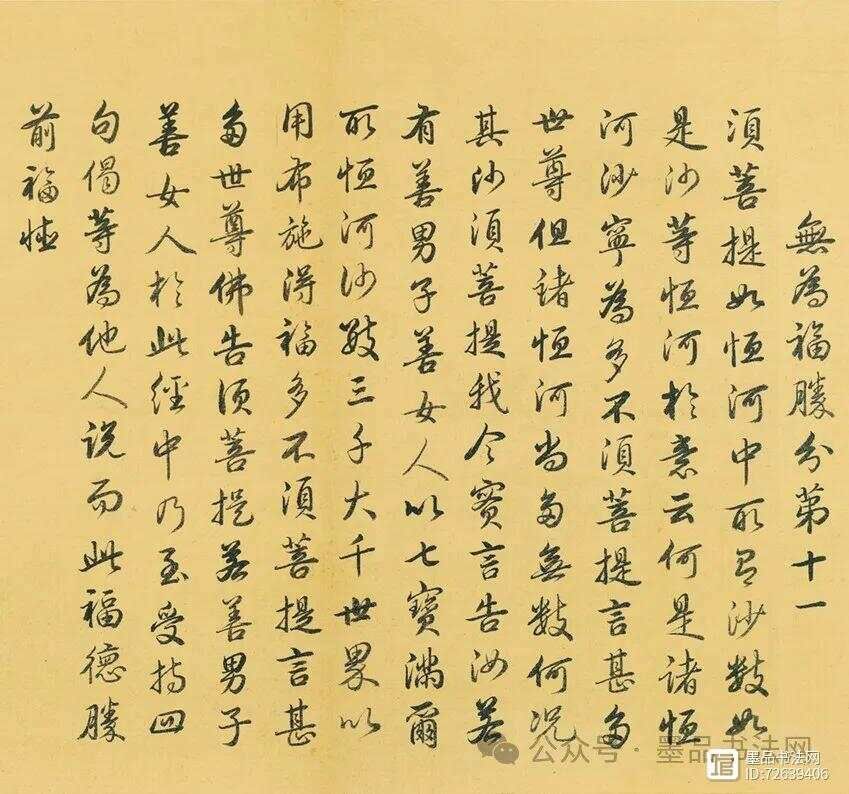 無為福勝分第十一
須菩提如恒河中所有沙數如
是沙等恒河於意云何是諸恒
河沙寧為多不須菩提言甚多
世尊但諸恒河尚多無數何況
其沙須菩提我今實言告汝若
有善男子善女人以七寶滿爾
所恒河沙數三千大千世界以
用布施得福多不須菩提言甚
多世尊佛告須菩提若善男子
善女人於此經中乃至受持四
句偈等為他人說而此福德勝
前福德
公众号·墨品书法网
墨品书法网
ID:72639406